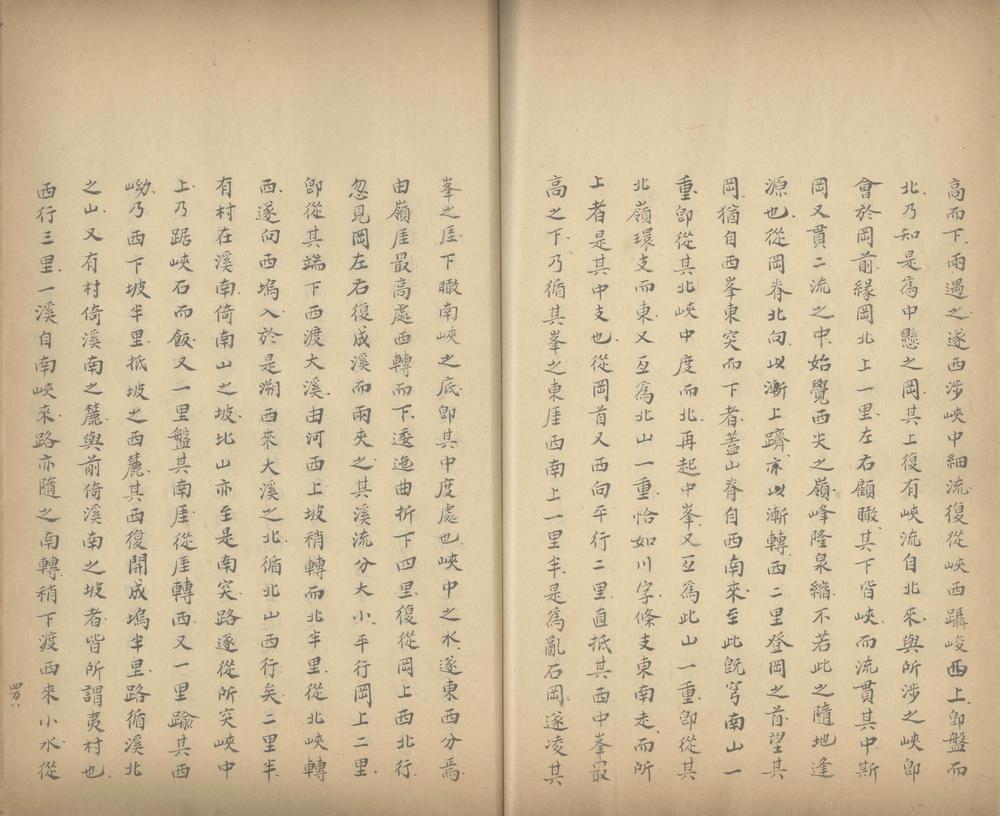 高而下、雨過之、遂西涉峽中細流、復從峽西躡峻西上、卽盤而
北、乃知是爲中懸之岡、其上復有峽流自北來、與所涉之峽卽
會於岡前、緣岡北上一里、左右顧瞰、其下皆峽、而流貫其中、斯
岡又貫二流之中、始覺西尖之嶺、峰隆泉縮、不若此之隨地逢
源也、從岡脊北向、以漸上躋、亦以漸轉西、二里、登岡之首、望其
岡、猶自西峯東突而下者、蓋山脊自西南來、至此旣穹南山一
重、卽從其北峽中度而北、再起中峯、又亙爲此山一重、卽從其
北嶺環支而東、又亙爲北山一重、恰如川字、條支東南走、而所
上者是其中支也、從岡首又西向平行二里、直抵其西中峯最
高之下、乃循其峯之東厓西南上一里半、是爲亂石岡、遂凌其
峯之厓、下瞰南峽之底、卽其中度處也、峽中之水、遂東西分焉、
由嶺厓最高處西轉而下、逶迤曲折、下四里、復從岡上西北行、
忽見岡左右復成溪而兩夾之、其溪流分大小、平行岡上二里、
卽從其端下、西渡大溪、由河西上坡、稍轉而北半里、從北峽轉
西、遂向西塢入、於是溯西來大溪之北、循北山西行矣、二里半、
有村在溪南、倚南山之坡、北山亦至是南突、路遂從所突峽中
上、乃踞峽石而飯、又一里、盤其南厓、從厓轉西、又一里、踰其西
坳、乃西下坡半里、抵坡之西麓、其西復開成塢、半里、路循溪北
之山、又有村倚溪南之麓、與前倚溪南之坡者、皆所謂夷村也、
西行三里、一溪自南峽來、路亦隨之南轉、稍下、渡西來小水、從